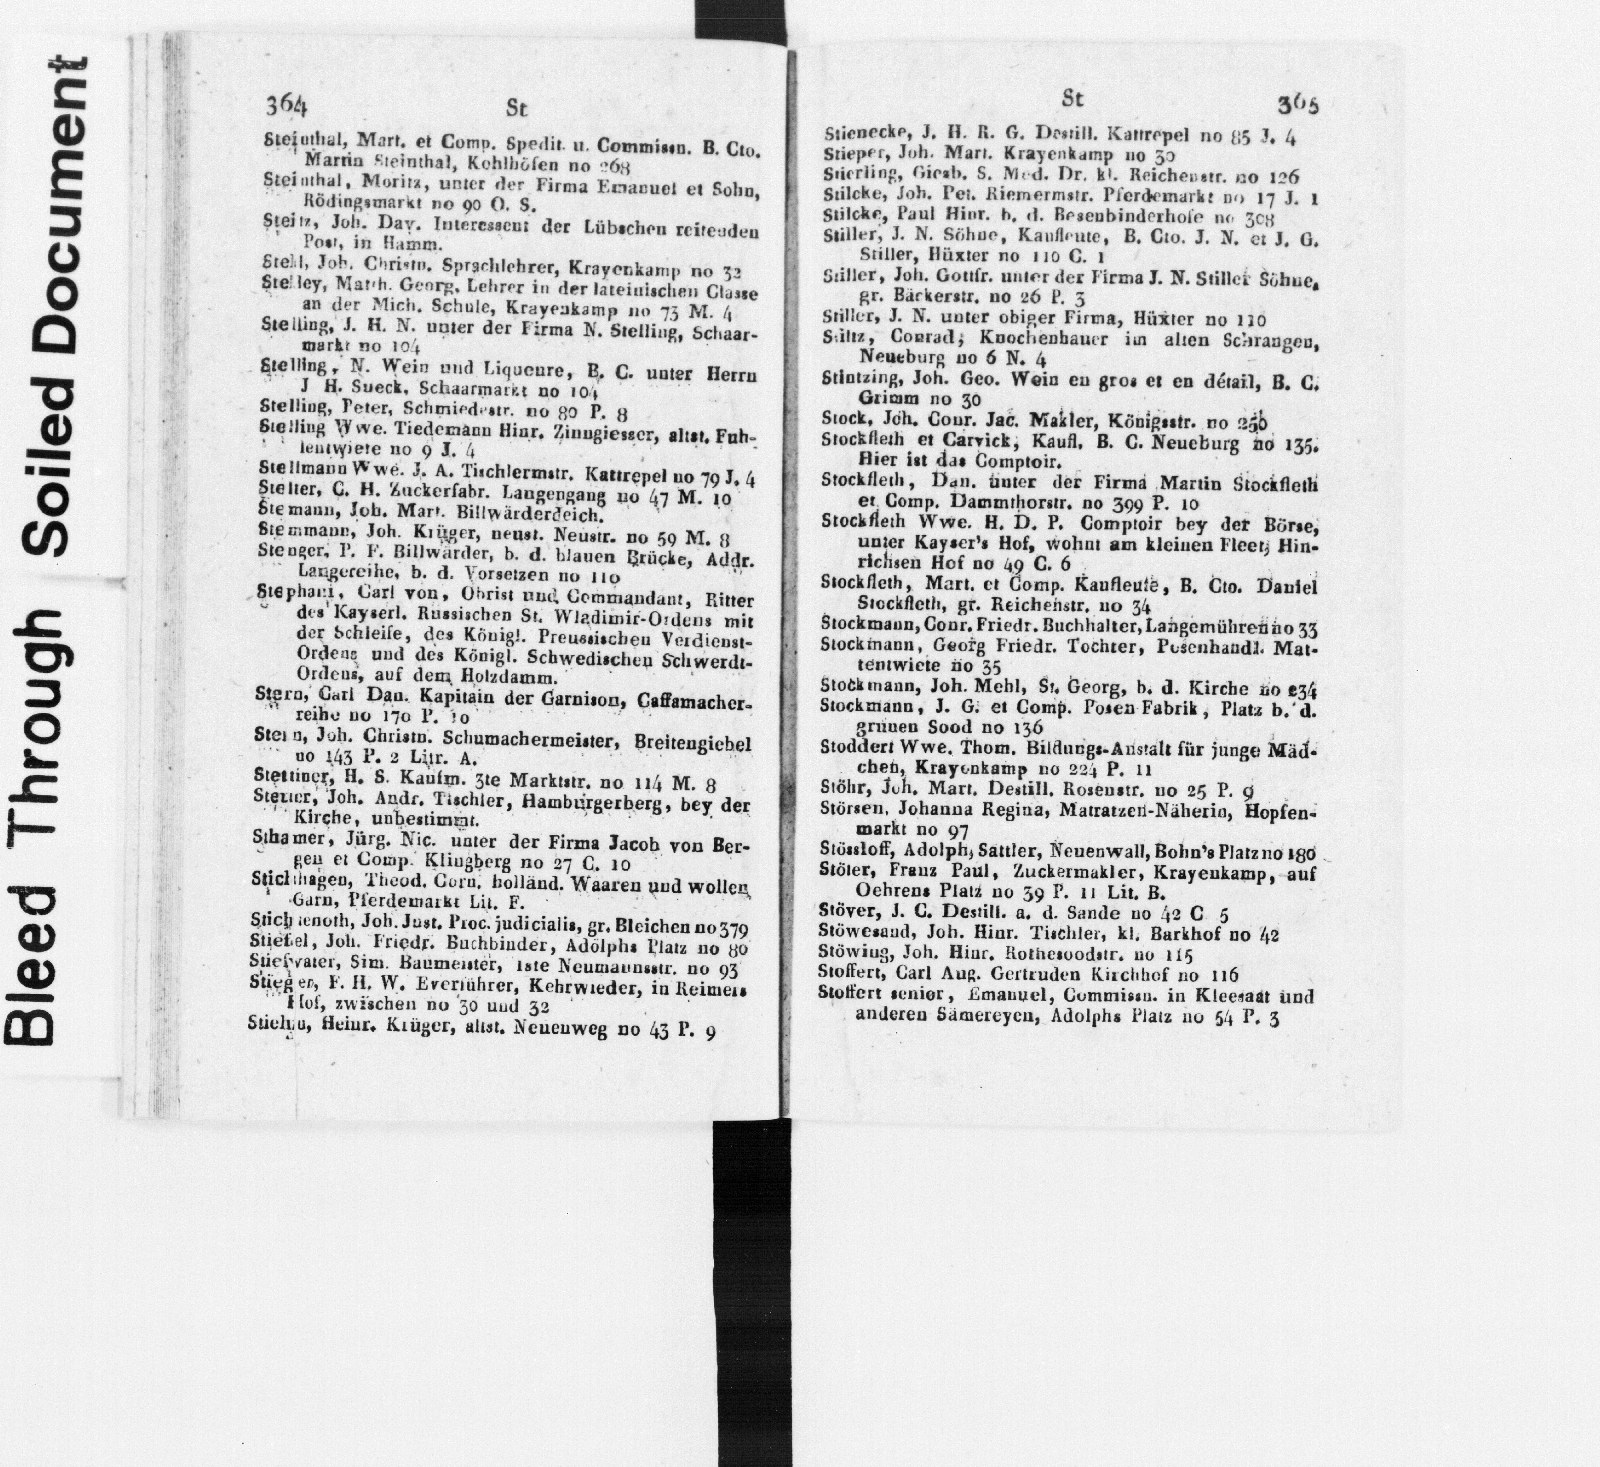 Bleed Through Soiled Document
364
St
Steinthal, Mart. et Comp. Spedit. u. Commissn. B. Cto.
Martin Steinthal, Kohlhöfen no 268
Steinthal, Moritz, unter der Firma Emanuel et Sohn,
Rödingsmarkt no 90 O. S.
Steitz, Joh. Dav. Interessent der Lübschen reitenden
Post, in Hamm.
Stell, Joh. Christn. Sprachlehrer, Krayenkamp no 32
Stelley, Matth. Georg, Lehrer in der lateinischen Classe
an der Mich. Schule, Krayenkamp no 73 M. 4
Stelling, J. H. N. unter der Firma N. Stelling, Schaar-
markt no 104
Stelling, N. Wein und Liqueure, B. C. unter Herrn
J H. Sueck, Schaarmarkt no 104
Stelling, Peter, Schmiedestr. no 80 P. 8
Stelling Wwe. Tiedemann Hinr. Zinngiesser, altst. Fuh-
lentwiete no 9 J. 4
Stellmann Wwe. J. A. Tischlermstr. Kattrepel no 79 J. 4
Stelter, C. H. Zuckerfabr. Langengang no 47 M. 10
Stemann, Joh. Mart. Billwärderdeich.
Stemmann, Joh. Krüger, neust. Neustr. no 59 M. 8
Stenger, P. F. Billwärder, b. d. blauen Brücke, Addr.
Langereihe, b. d. Vorsetzen no 110
Stephani, Carl von, Obrist und Commandant, Ritter
des Kayserl. Russischen St. Wladimir-Ordens mit
der Schleife, des Königl. Preussischen Verdienst-
Ordens und des Königl. Schwedischen Schwerdt-
Ordens, auf dem Holzdamm.
Stern, Carl Dan. Kapitain der Garnison, Caffamacher-
reihe no 170 P. 10
Stern, Joh. Christn. Schumachermeister, Breitengiebel
no 143 P. 2 Litr. A.
Stettiner, H. S. Kaufm. 3te Marktstr. no 114 M. 8
Steuer, Joh. Andr. Tischler, Hamburgerberg, bey der
Kirche, unbestimmt.
Sthamer, Jürg. Nic. unter der Firma Jacob von Ber-
gen et Comp. Klingberg no 27 C. 10
Stichhagen, Theod. Corn. holländ. Waaren und wollen
Garn, Pferdemarkt Lit. F.
Stichtenoth, Joh. Just. Proc. judicialis, gr. Bleichen no 379
Stiefel, Joh. Friedr. Buchbinder, Adolphs Platz no 80
Stiefvater, Sim. Baumeister, 1ste Neumannsstr. no 93
Stieger, F. H. W. Everführer, Kehrwieder, in Reimers
Hof, zwischen no 30 und 32
Stiehn, Heinr. Krüger, altst. Neuenweg no 43 P. 9
St
365
Stienecke, J. H. R. G. Destill. Kattrepel no 85 J. 4
Stieper, Joh. Mart. Krayenkamp no 30
Stierling, Giesb. S. Med. Dr. kl. Reichenstr. no 126
Stilcke, Joh. Pet. Riemermstr. Pferdemarkt no 17 J. 1
Stilcke, Paul Hinr. b. d. Besenbinderhofe no 308
Stiller, J. N. Söhne, Kaufleute, B. Cto. J. N. et J. G.
Stiller, Hüxter no 110 C. 1
Stiller, Joh. Gottfr. unter der Firma J. N. Stiller Söhne,
gr. Bäckerstr. no 26 P. 3
Stiller, J. N. unter obiger Firma, Hüxter no 110
Stiltz, Conrad, Knochenhauer im alten Schrangen,
Neueburg no 6 N. 4
Stintzing, Joh. Geo. Wein en gros et en détail, B. C.
Grimm no 30
Stock, Joh. Conr. Jac. Makler, Königsstr. no 256
Stockfleth et Carvick, Kaufl. B. C. Neueburg no 135.
Hier ist das Comptoir.
Stockfleth, Dan. unter der Firma Martin Stockfleth
et Comp. Dammthorstr. no 399 P. 10
Stockfleth Wwe. H. D. P. Comptoir bey der Börse,
unter Kayser's Hof, wohnt am kleinen Fleet, Hin-
richsen Hof no 49 C. 6
Stockfleth, Mart. et Comp. Kaufleute, B. Cto. Daniel
Stockfleth, gr. Reichenstr. no 34
Stockmann, Conr. Friedr. Buchhalter, Langemühren no 33
Stockmann, Georg Friedr. Tochter, Posenhandl. Mat-
tentwiete no 35
Stockmann, Joh. Mehl, St. Georg, b. d. Kirche no 234
Stockmann, J. G. et Comp. Posen Fabrik, Platz b. d.
grünen Sood no 136
Stoddert Wwe. Thom. Bildungs-Anstalt für junge Mäd-
chen, Krayenkamp no 224 P. 11
Stöhr, Joh. Mart. Destill. Rosenstr. no 25 P. 9
Störsen, Johanna Regina, Matratzen-Näherin, Hopfen-
markt no 97
Stössloff, Adolph, Sattler, Neuenwall, Bohn's Platz no 180
Stöter, Franz Paul, Zuckermakler, Krayenkamp, auf
Oehrens Platz no 39 P. 11 Lit. B.
Stöver, J. C. Destill. a. d. Sande no 42 C 5
Stöwesand, Joh. Hinr. Tischler, kl. Barkhof no 42
Stöwing, Joh. Hinr. Rothesoodstr. no 115
Stoffert, Carl Aug. Gertruden Kirchhof no 116
Stoffert senior, Emanuel, Commissn. in Kleesaat und
anderen Sämereyen, Adolphs Platz no 54 P. 3